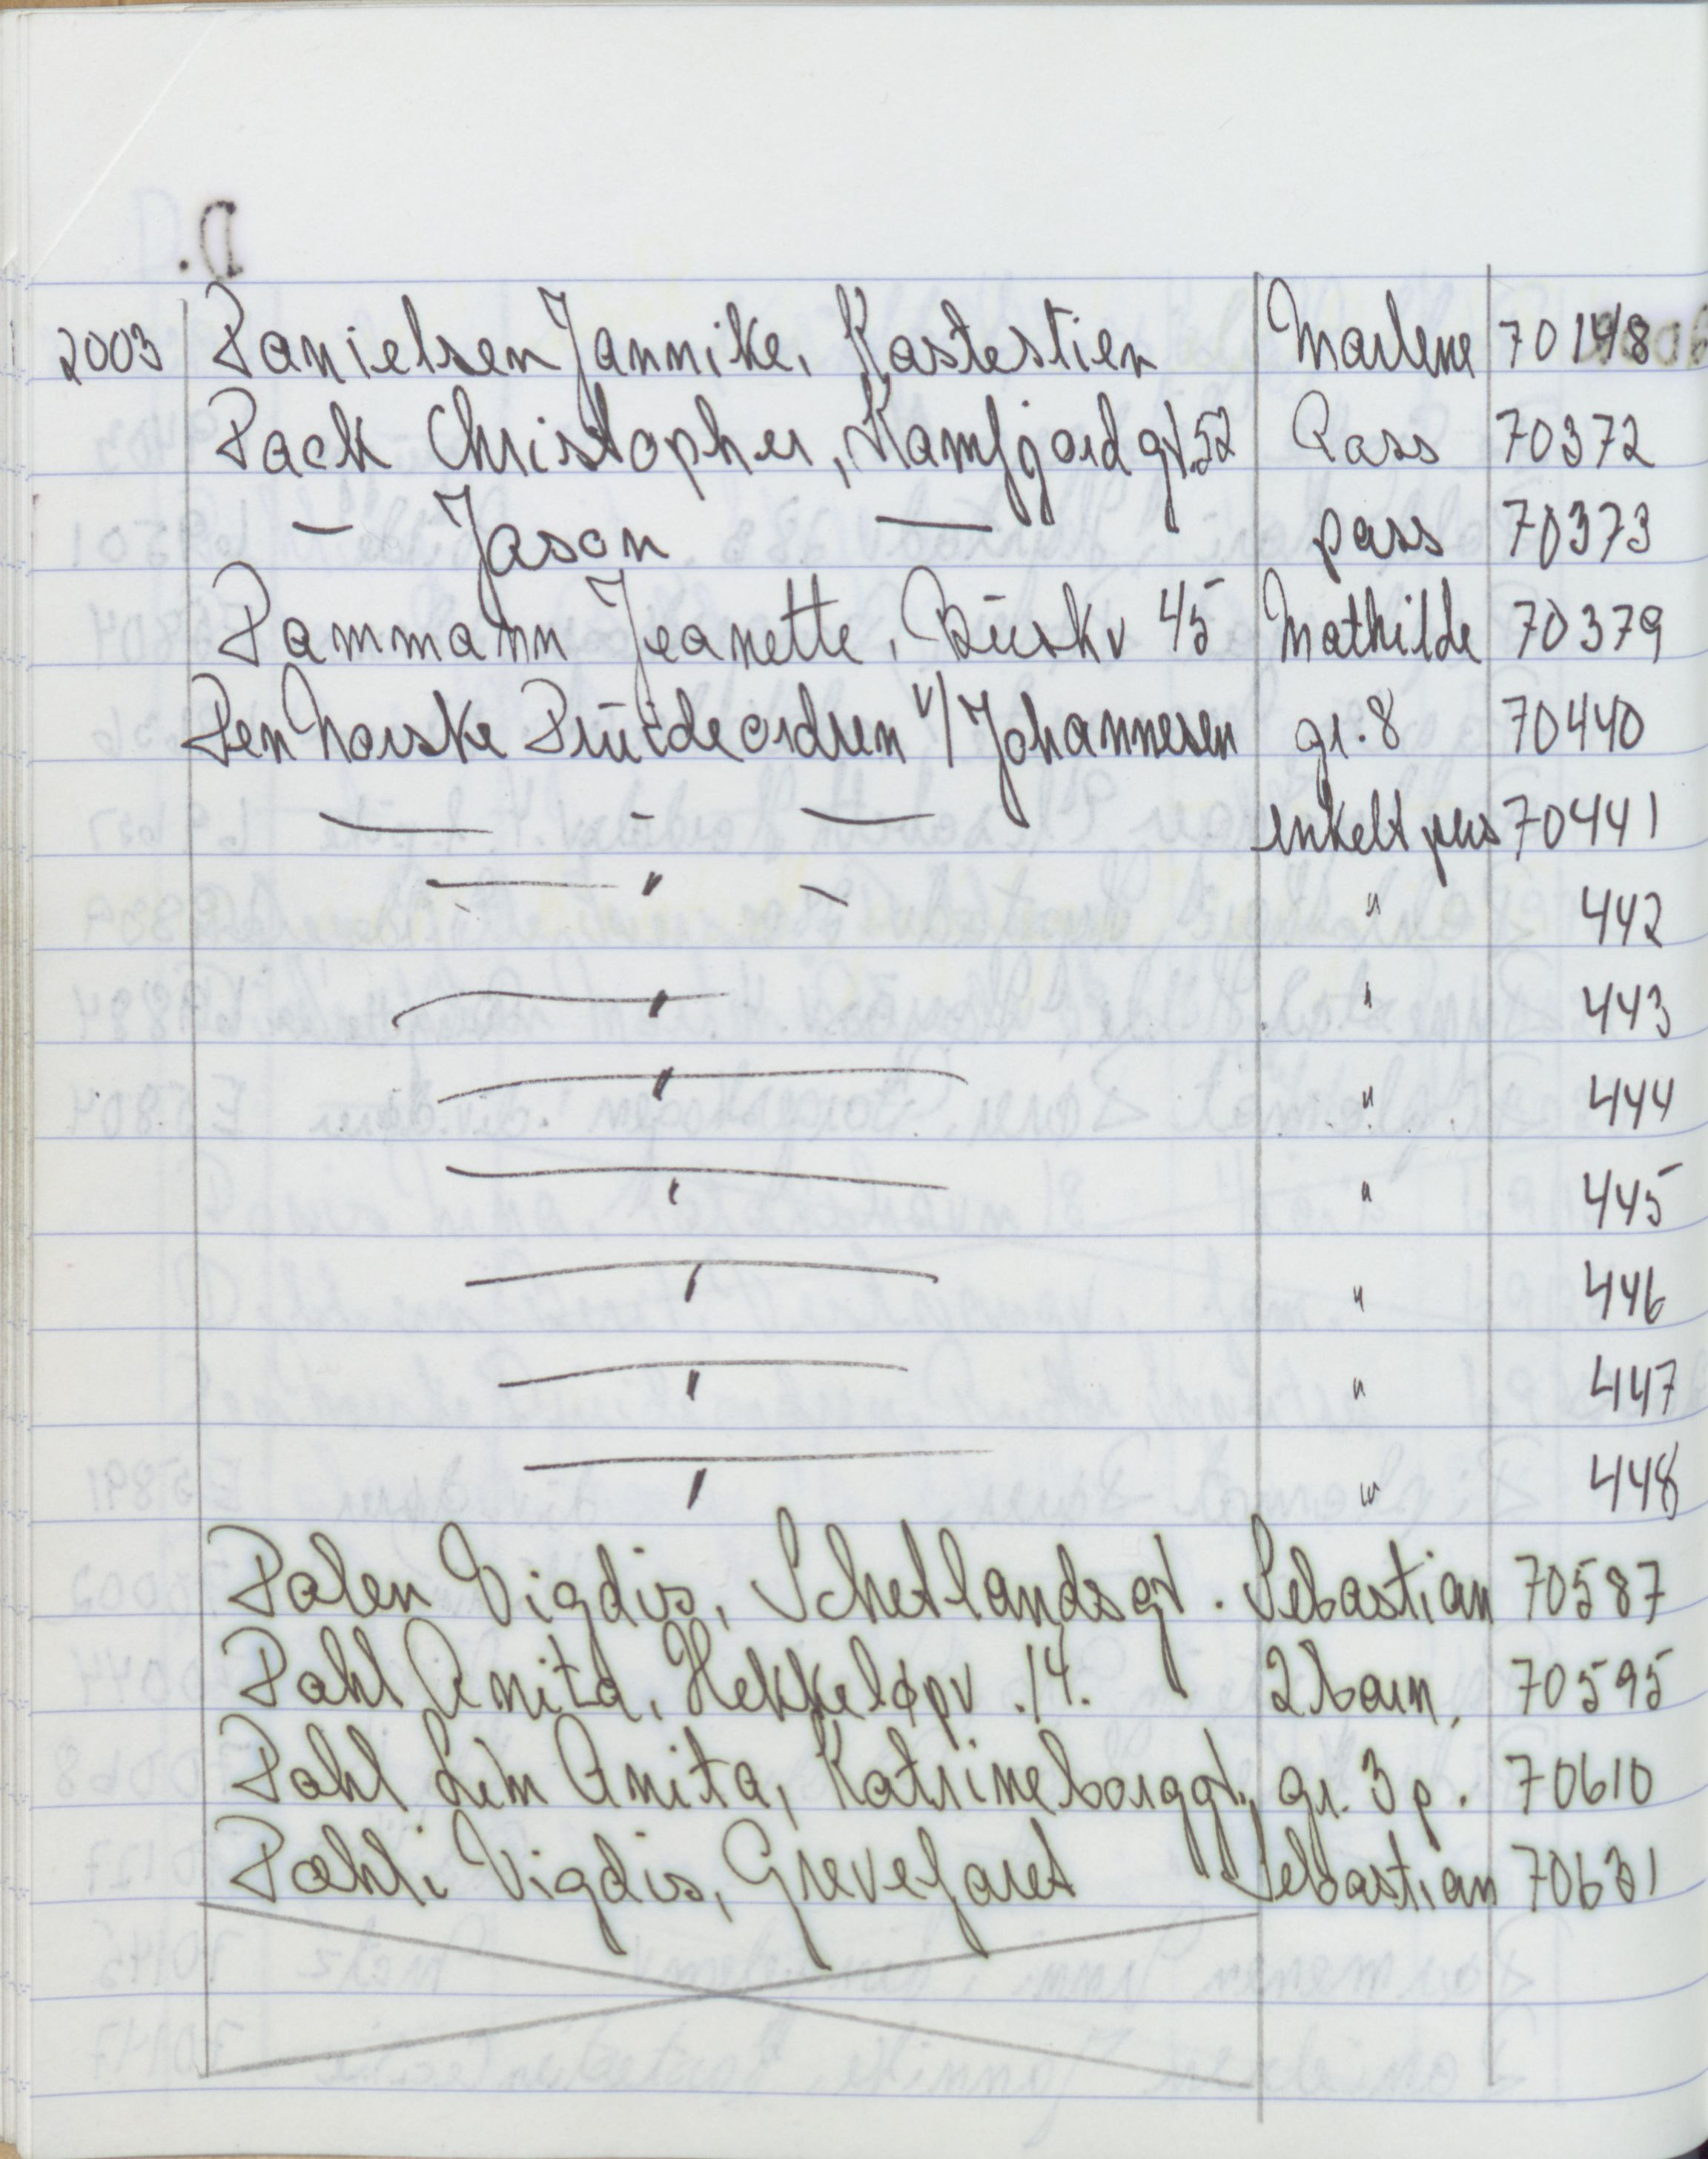 D.
2003 Danielsen Jannike, Kastestien Marlene 70148
Dack Christopher, Kamfjordgt.52 Pass 70372
— Jason — pass 70373
Dammann Jeanette, Buskv 45 Mathilde 70379
Den Norske Druideordren v/Johannesen gr.8 70440
— " — enkelt pers 70441
— " — " 442
— " — " 443
— " — " 444
— " — " 445
— " — " 446
— " — " 447
— " — " 448
Dalen Vigdis, Schetlandsgt. Sebastian 70587
Dahl Anita, Hekkeløpv .14. 2 barn, 70595
Dahl Lem Anita, Katrineborggt., gr. 3 p. 70610
Dahli Vigdis, Grevefaret Sebastian 70631